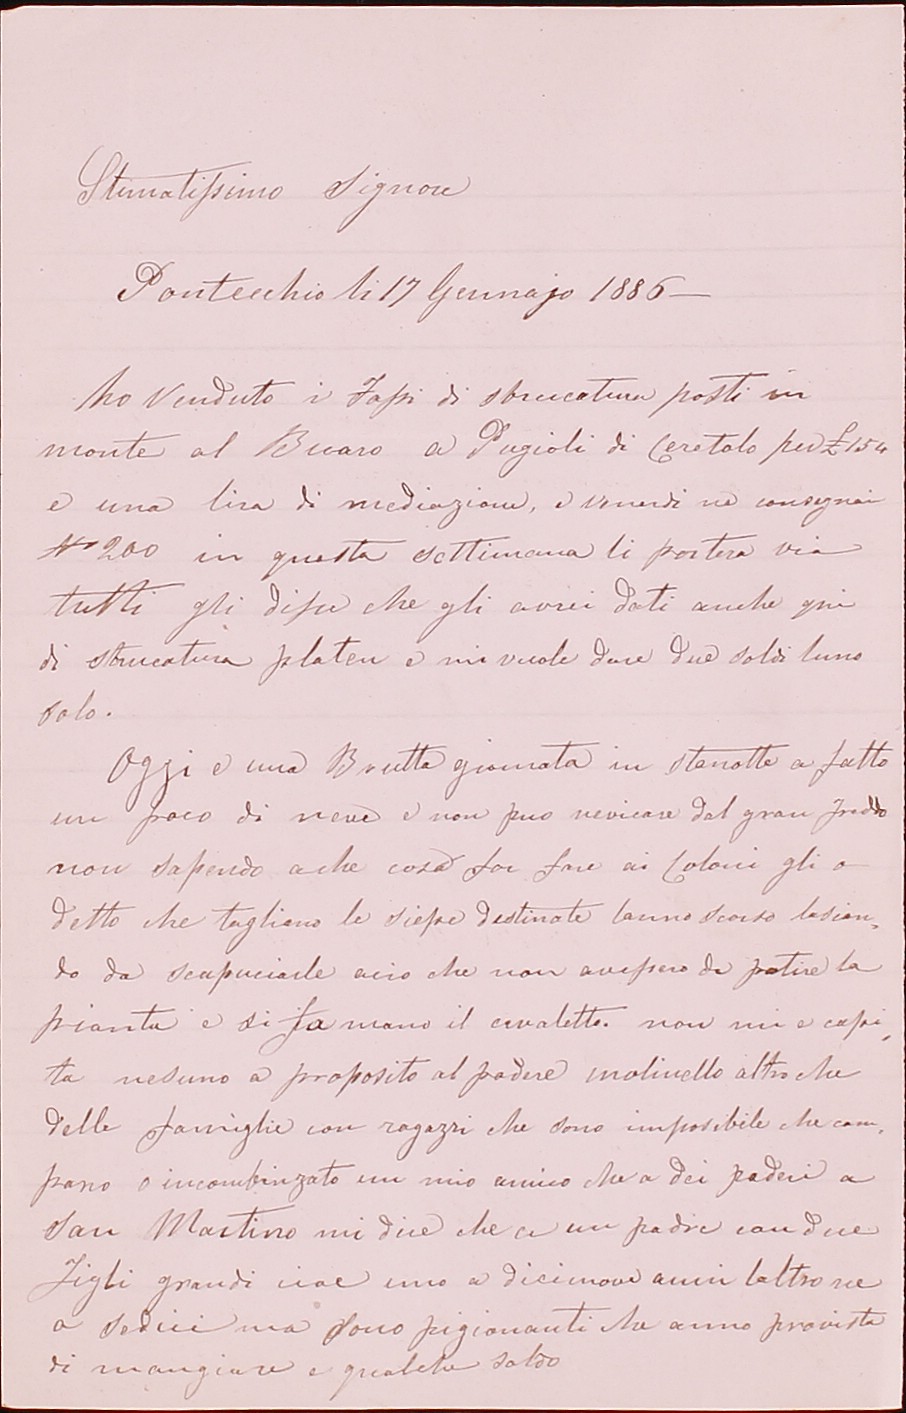 Stimatissimo Signore
Pontecchio li 17 Gennajo 1886
ho Venduto i Fassi di struccatura posti in
monte al Buaro a Pugioli di Ceretolo per £ 154
e una lira di mediazione, e venerdi ne consegnai
N° 200 in questa settimana li portera via
tutti gli dissi che gli avrei dati anche qui
di struccatura e mi vuole dare due soldi luno
solo.
Oggi e una Brutta giornata in stanotte a fatto
un poco di neve e non puo nevicare dal gran freddo
non sapendo ache cosa far fare ai Coloni gli o
detto che tagliano le siepe destinate lanno scorso lascian,
do da scapuciarle acio che non avessero da patire la
pianta e si fa mano il cavaletto. non mi e capi,
ta nesuno a proposito al podere molinello altro che
delle famiglie con ragazzi che sono imposibile che cam,
pano o incombinzato un mio amico che a dei poderi a
San Martino mi dice che ce un padre con due
Figli grandi cioe uno a dicinove anni laltro ne
a sedici ma sono pigionanti che anno provista
di mangiare e qualche soldo